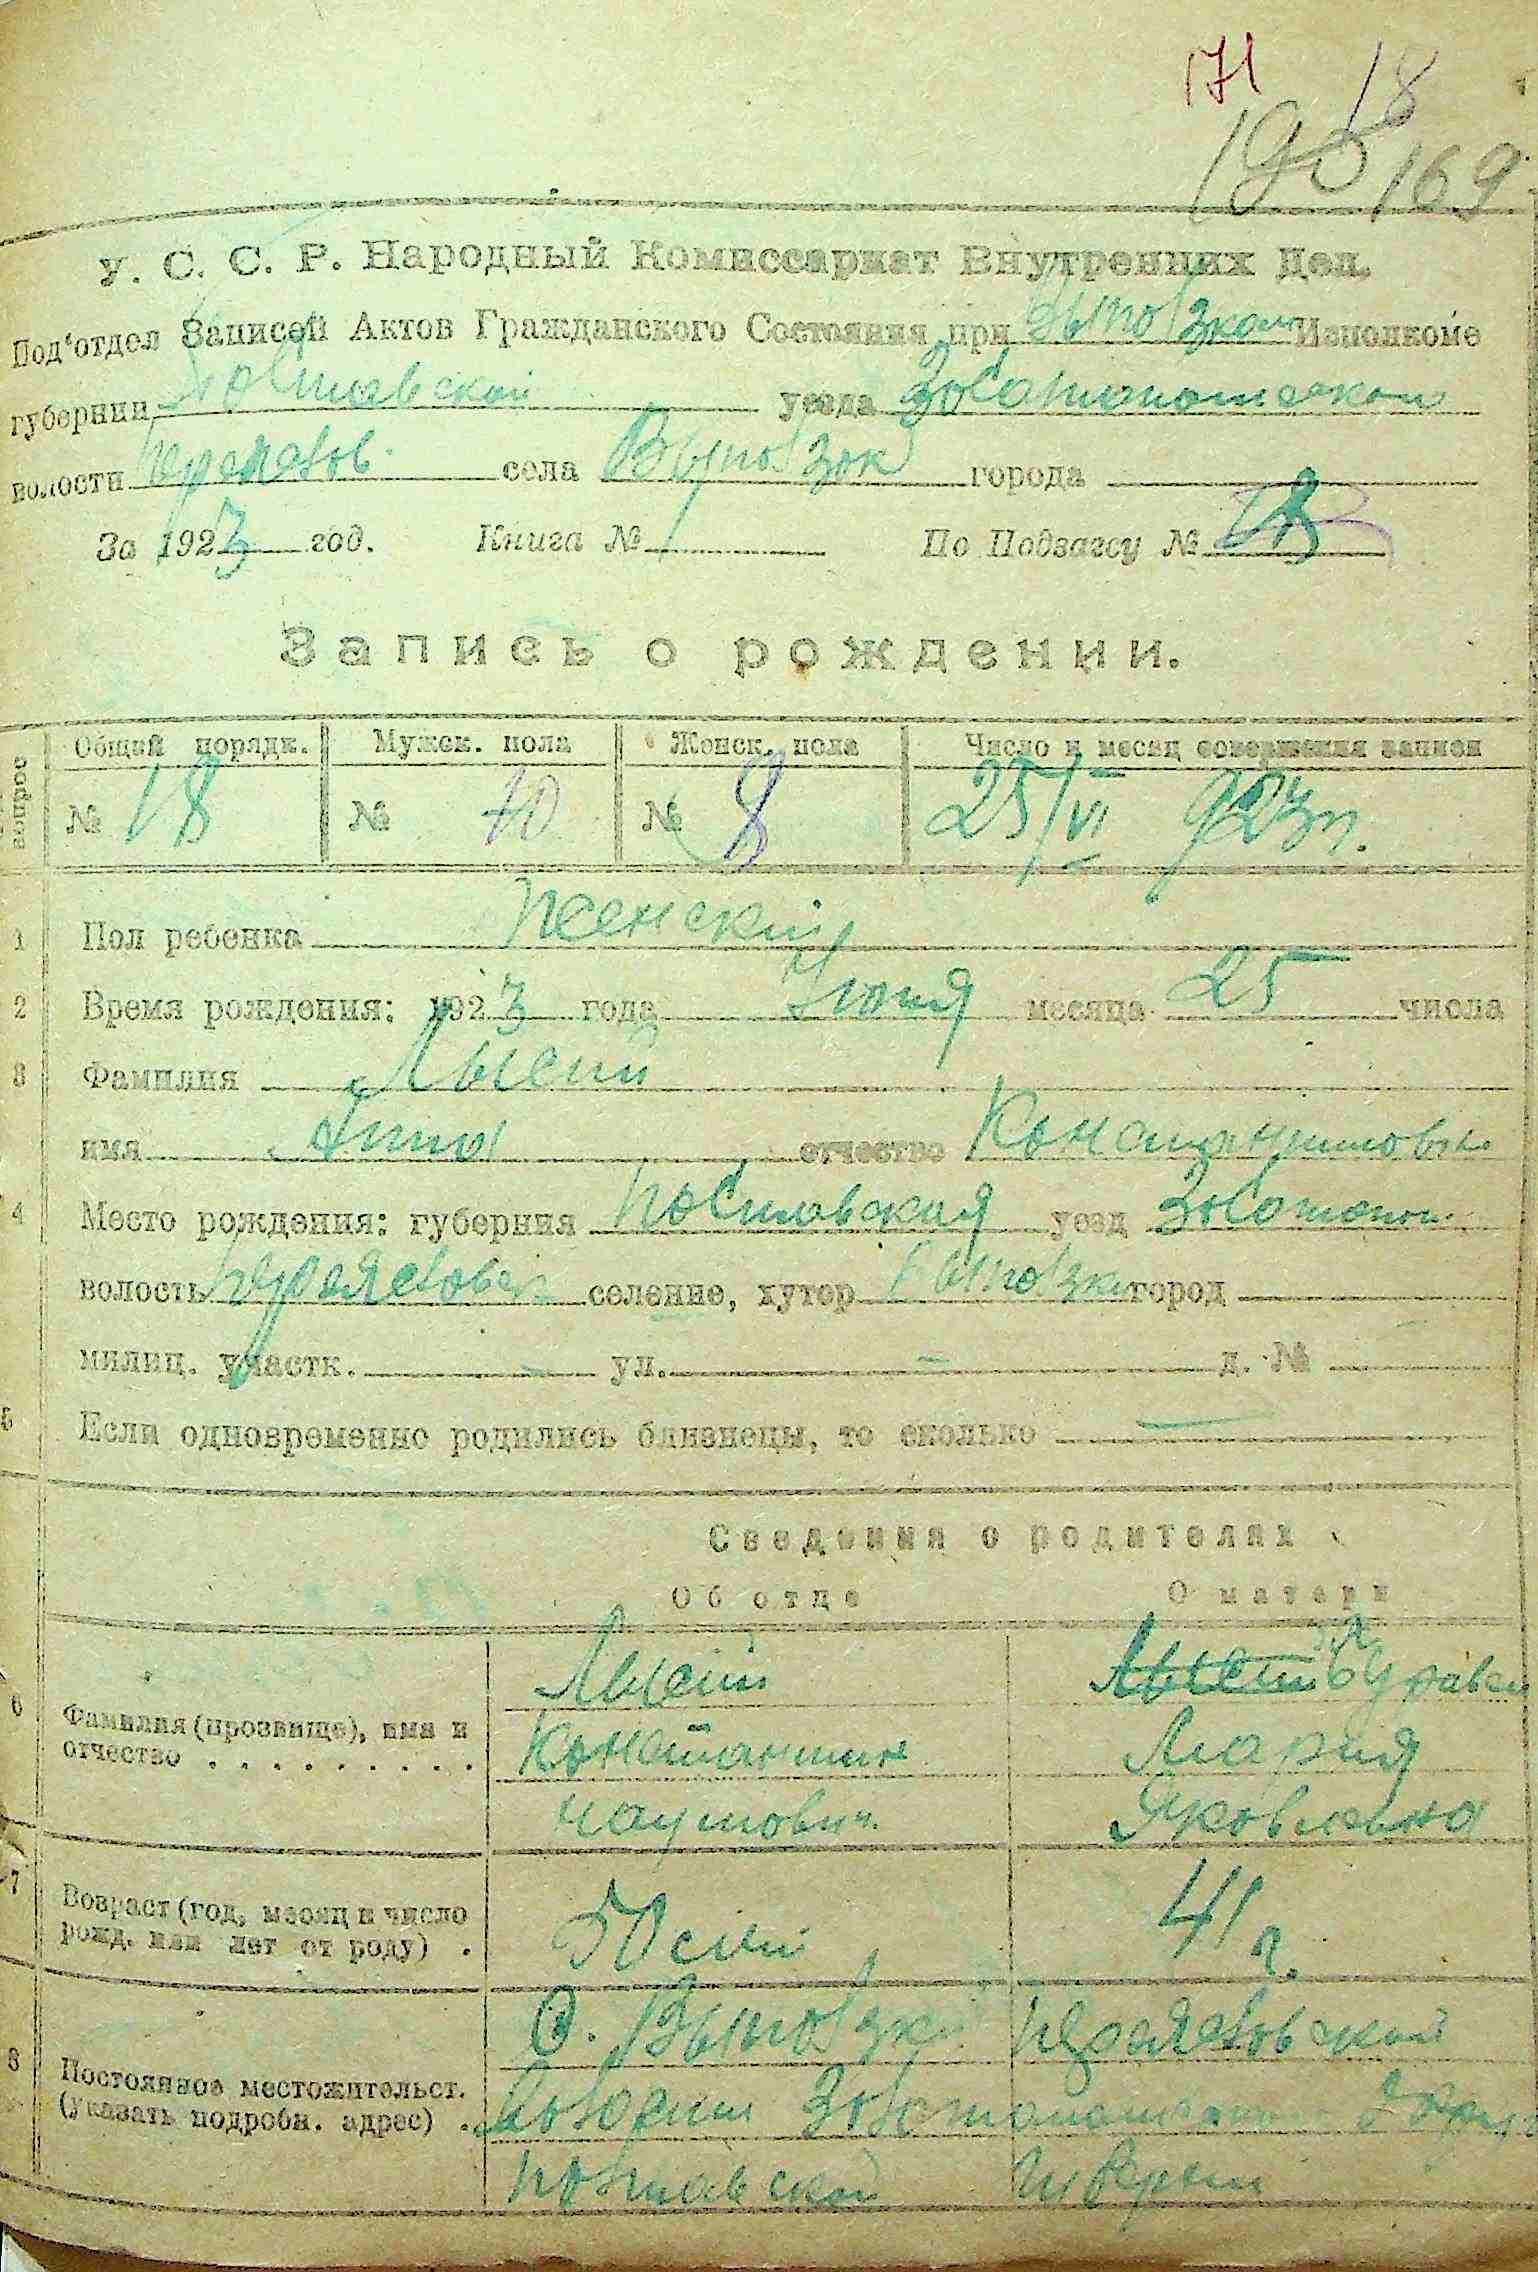 171 18
190 169
У. С. С. Р. Народный Комиссариат Внутренних Дел.
Под'отдел Записей Актов Гражданского Состояния при Выповзком Исполкоме
губернии Полтавской уезда Золотоношском
волости села Выповзк города
За 1923 год. Книга № 1 По Подзагсу № 18
Запись о рождении.
вопрос Общий порядк. Мужск. пола Женск. пола Число и месяц совершения записи
№ 18 № 10 № 8 25/VI 923 г.
1 Пол ребенка Женский
2 Время рождения: 1923 года Июня месяца 25 числа
3 Фамилия Лысий
имя Анна отчество Константиновна
4 Место рождения: губерния Полтавская уезд Золотонош.
волость селение, хутор Выповзки город
милиц. участк. — ул. — д. №
5 Если одновременно родились близнецы, то сколько —
Сведения о родителях
Об отце О матери
6 Фамилия (прозвище), имя и отчество . . . . . . . . . Лысий Лысий
Константин Мария
Наумович Яковлевна
7 Возраст (год, месяц и число рожд. или лет от роду) . 50 лет 41 г.
8 Постоянное местожительст. (указать подробн. адрес) . С. Выповзки
Волости Золотоношского
Полтавской губернии